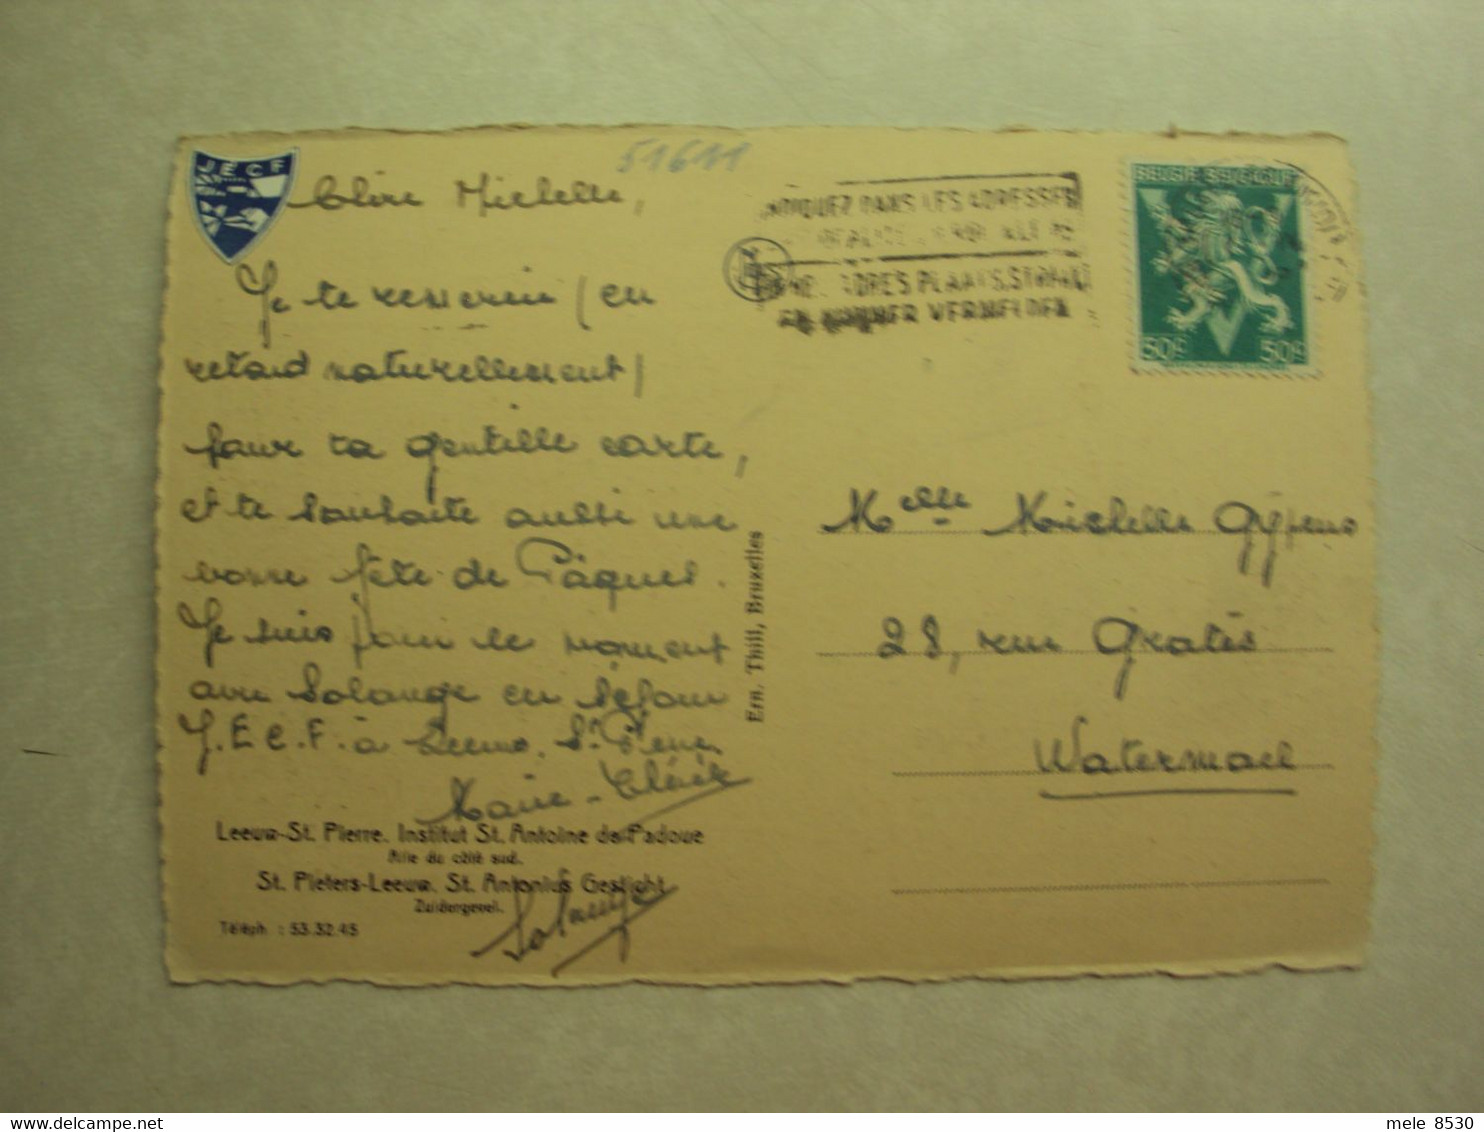 JECF
51611
Chère Michelle,
Je te remercie (en
retard naturellement)
pour ta gentille carte,
et te souhaite aussi une
bonne fête de Pâques.
Je suis pour le moment
avec Solange en séjour
J.E.C.F. à Leeuw. St. Pierre.
Marie-Claire
Leeuw-St. Pierre. Institut St. Antoine de Padoue
Aile du côté sud.
St. Pieters-Leeuw. St. Antonius Gesticht
Zuidergevel.
Téléph : 53.32.45
Solange
Ern. Thill, Bruxelles
INDIQUEZ DANS LES ADRESSES
ADRES PLAATS, STRAAT
EN NUMMER VERMELDEN
BELGIE BELGIQUE
50c 50c
Melle Michelle Gypens
28, rue Gratès
Watermael
mele 8530